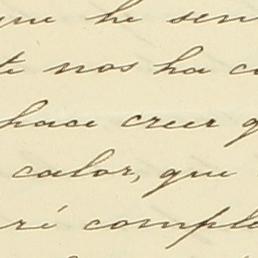 que he sen
te nos ha c
hace creer q
calor, que
ré comple